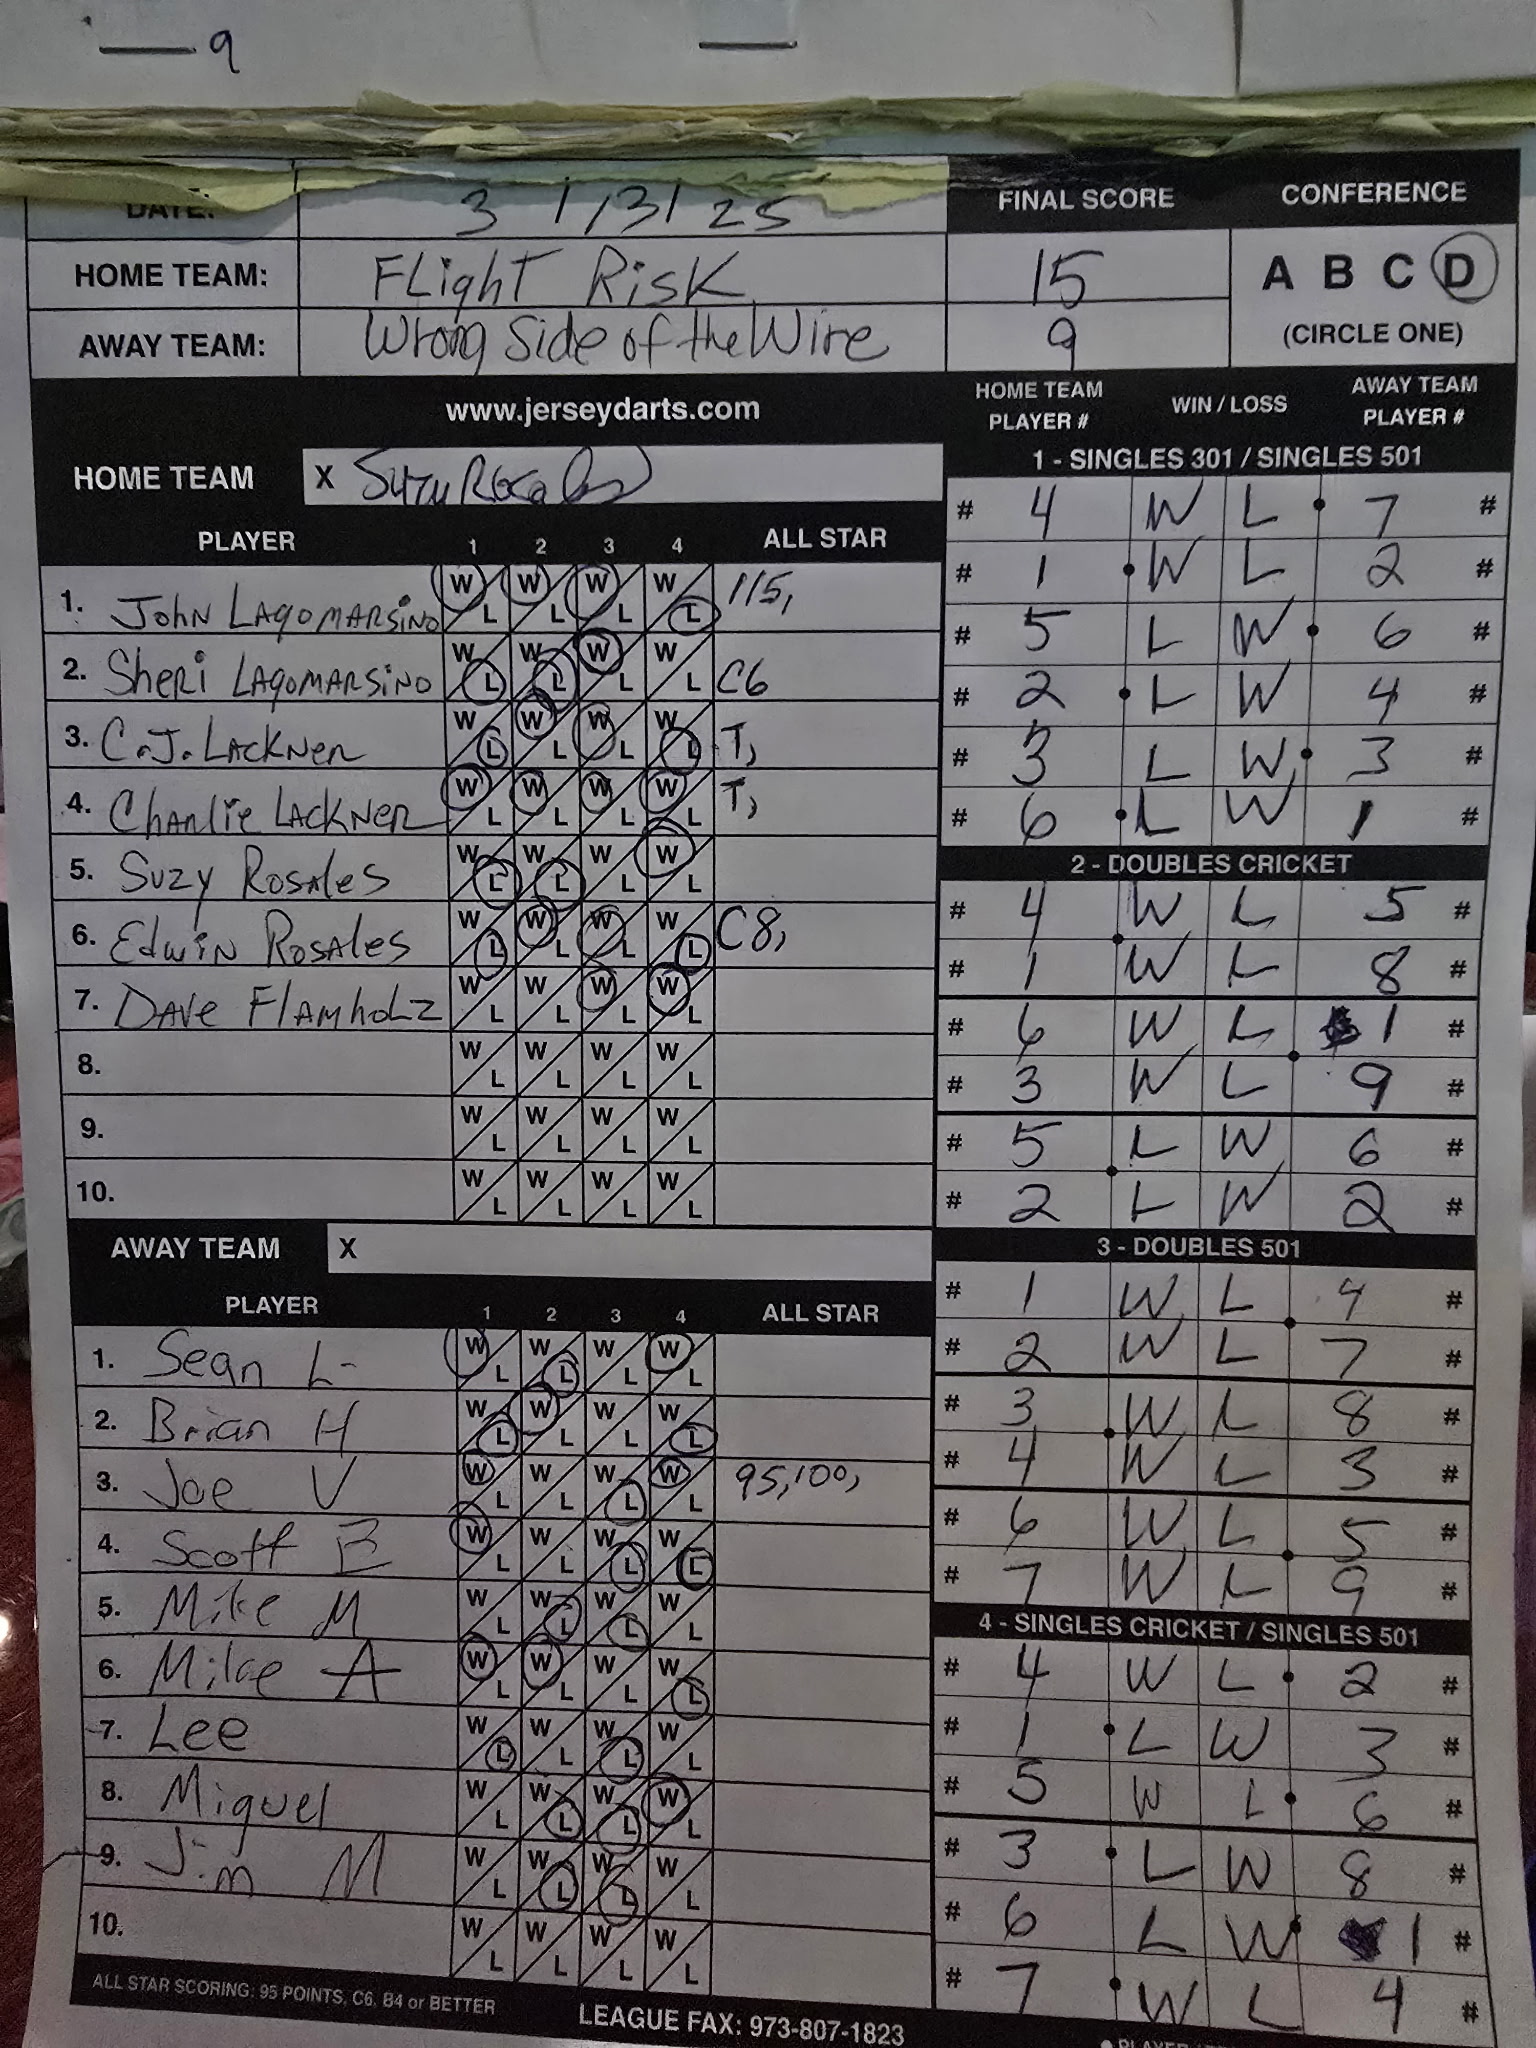 9
DATE: 3/31/25 FINAL SCORE CONFERENCE
HOME TEAM: FLight Risk 15 A B C D
AWAY TEAM: Wrong Side of the Wire 9 (CIRCLE ONE)
www.jerseydarts.com
HOME TEAM X Suzy Rosales
PLAYER 1 2 3 4 ALL STAR
1. John LAgoMARSiNO W L W L W L W L 115,
2. Sheri LAgoMARSiNO W L W L W L W L C6
3. C.J. LACKNer W L W L W L W L T,
4. ChArlie LACKNer W L W L W L W L T,
5. Suzy RosAles W L W L W L W L
6. EdwiN RosAles W L W L W L W L C8,
7. DAve FlAmholz W L W L W L W L
8. W L W L W L W L
9. W L W L W L W L
10. W L W L W L W L
AWAY TEAM X
PLAYER 1 2 3 4 ALL STAR
1. Sean L- W L W L W L W L
2. Brian H W L W L W L W L
3. Joe V W L W L W L W L 95,100,
4. Scott B W L W L W L W L
5. Mike M W L W L W L W L
6. Mike A W L W L W L W L
7. Lee W L W L W L W L
8. Miguel W L W L W L W L
9. Jim M W L W L W L W L
10. W L W L W L W L
ALL STAR SCORING: 95 POINTS, C6, B4 or BETTER
LEAGUE FAX: 973-807-1823
HOME TEAM PLAYER # WIN / LOSS AWAY TEAM PLAYER #
1 - SINGLES 301 / SINGLES 501
# 4 W L 7 #
# 1 W L 2 #
# 5 L W 6 #
# 2 L W 4 #
# 3 L W 3 #
# 6 L W 1 #
2 - DOUBLES CRICKET
# 4 W L 5 #
# 1 W L 8 #
# 6 W L 1 #
# 3 W L 9 #
# 5 L W 6 #
# 2 L W 2 #
3 - DOUBLES 501
# 1 W L 4 #
# 2 W L 7 #
# 3 W L 8 #
# 4 W L 3 #
# 6 W L 5 #
# 7 W L 9 #
4 - SINGLES CRICKET / SINGLES 501
# 4 W L 2 #
# 1 L W 3 #
# 5 W L 6 #
# 3 L W 8 #
# 6 L W 1 #
# 7 W L 4 #